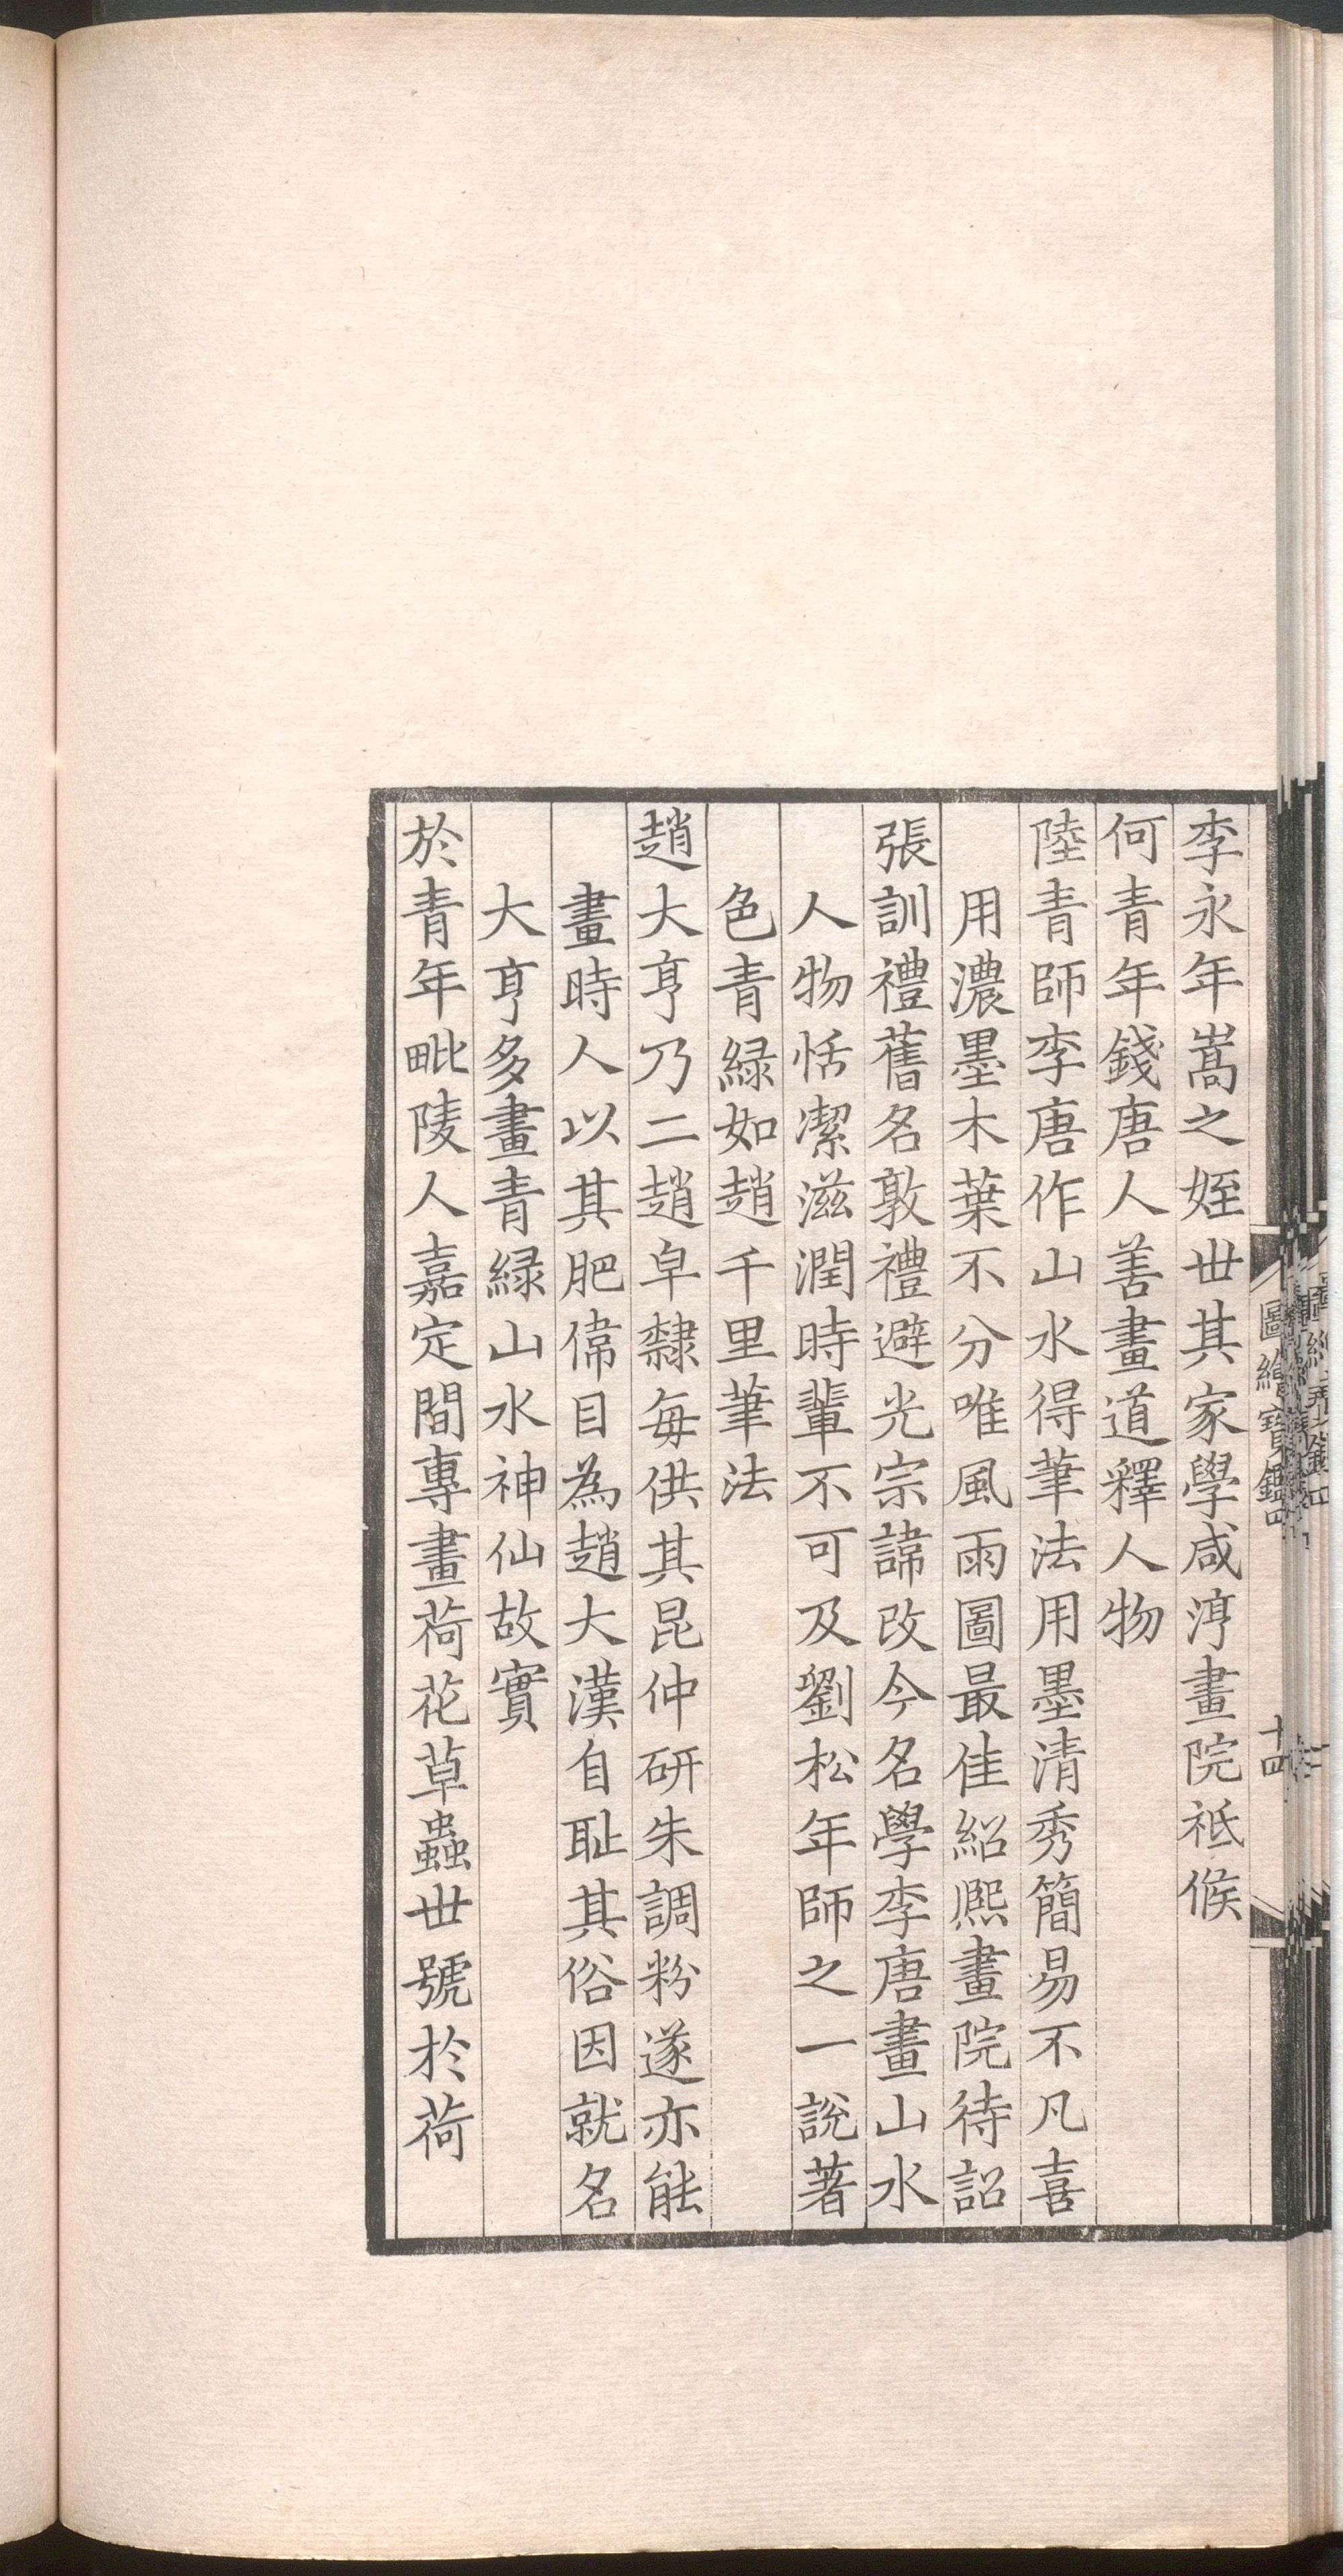 李永年嵩之姪世其家學咸淳畫院祗候
何青年錢唐人善畫道釋人物
陸青師李唐作山水得筆法用墨清秀簡易不凡喜
用濃墨木葉不分唯風雨圖最佳紹熙畫院待詔
張訓禮舊名敦禮避光宗諱改今名學李唐畫山水
人物恬潔滋潤時輩不可及劉松年師之一說著
色青綠如趙千里筆法
趙大亨乃二趙皁隸每供其昆仲研朱調粉遂亦能
畫時人以其肥偉目為趙大漢自耻其俗因就名
大亨多畫青綠山水神仙故實
於青年毗陵人嘉定間專畫荷花草蟲世號於荷
圖繪寶鑑四
十四